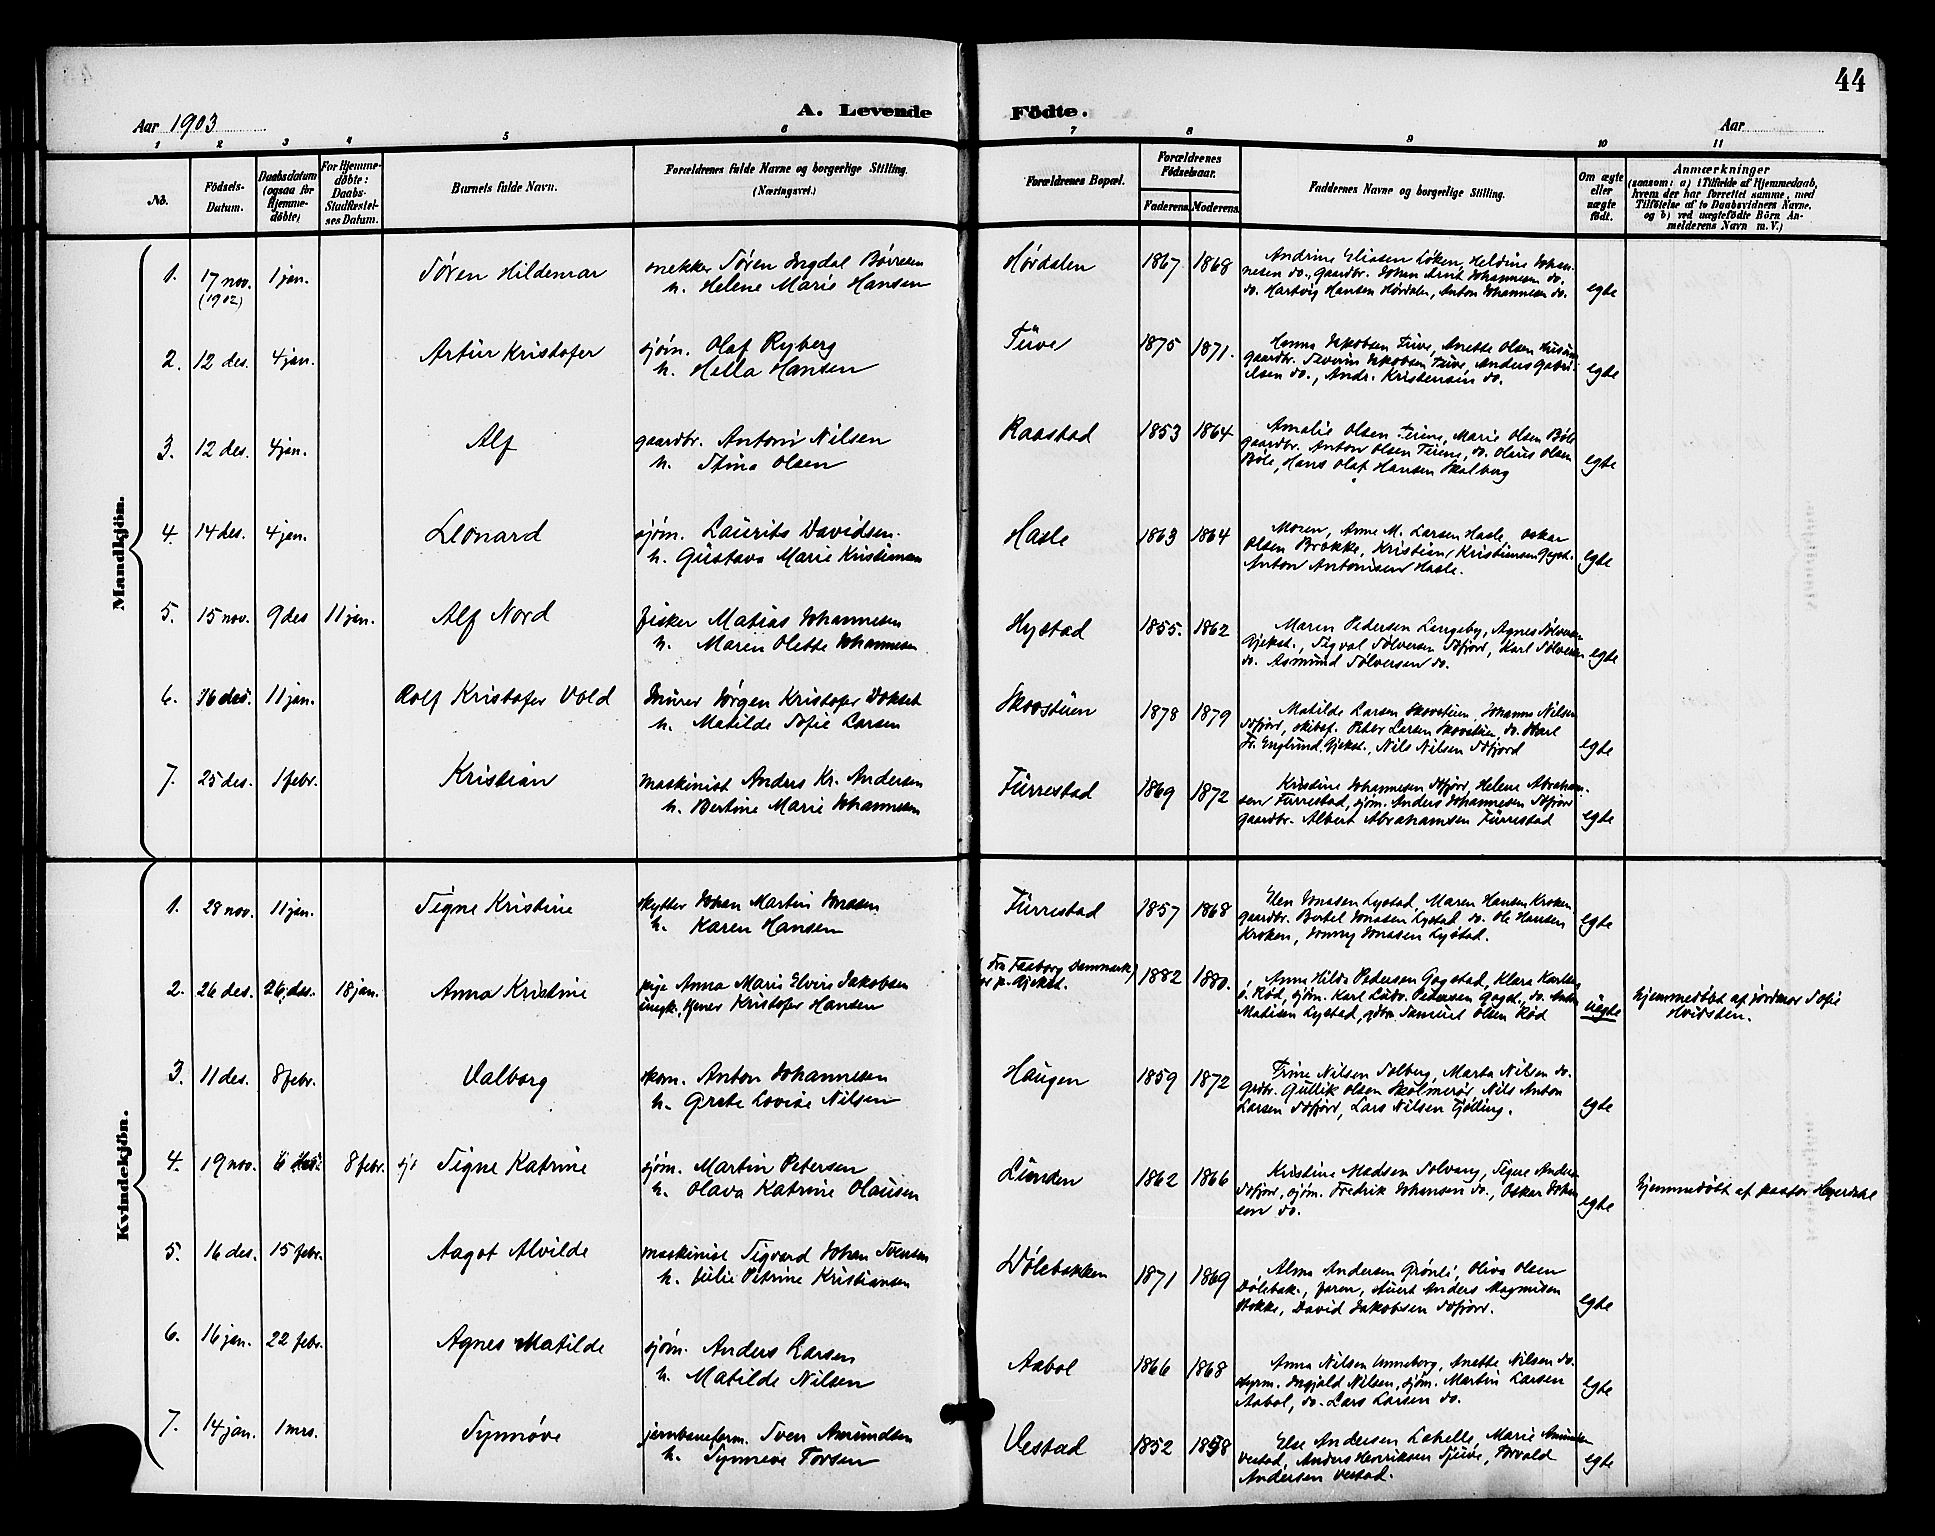 44
Aar 1903
A. Levende Födte.
Aar
1 2 3 4 5 6 7 8 9 10 11
No.
Födsels-Datum.
Daabsdatum (ogsaa for Hjemmedöbte)
For Hjemmedøbte: Daabs-Stadfæstelses Datum.
Barnets fulde Navn.
Forældrenes fulde Navne og borgerlige Stilling. (Næringsvei.)
Forældrenes Bopæl.
Forældrenes Födselsaar.
Faderens Moderens
Faddernes Navne og borgerlige Stilling.
Om ægte eller uægte födt.
Anmærkninger
(saasom: a) i Tilfælde af Hjemmedaab, hvem der har forrettet samme, med Tilföielse af to Daabsvidners Navne, og b) ved uægtefödte Börn Anmelderens Navn m. V.)
Mandkjön.
1. 17 nov. (1902) 1 jan. Søren Hildemar
snekker Søren Ingdal Børresen
h. Helene Marie Hansen
Hørdalen 1867 1868
Andrine Eliasen Løken, Heldine Johan-
nesen do., gaardbr. Johan Arnt Johannesen do.
do. Hartvig Hansen Hørdalen, Anton Johannesen do.
egte
2. 12 des. 4 jan. Artur Kristofer
sjøm. Olaf Ryberg
h. Hella Hansen
Tuve 1875 1871.
Hanna Jakobsen Tuve, Anette Olsen
gaardbr. Severin Jakobsen Tuve, Anders Gabri-
elsen do., Andr. Kristensen do.
egte
3. 12 des. 4 jan. Alf
gaardbr. Anton Nilsen
h. Stina Olsen
Raastad 1853 1864
Amalie Olsen, Marie Olsen Bøle
gaardbr. Anton Olsen, do. Hans Olsen
Bøle, Hans Olaf Hansen Skalberg
egte
4. 14 des. 4 jan. Leonard
sjøm. Laurits Davidsen.
h. Gustava Marie Kristiansen
Hasle 1863 1864
Moren, Anne M. Larsen Hasle, Oskar
Olsen Brokke, Kristian Kristiansen Gjekst.
Anton Antonisen Hasle.
egte
5. 15 nov. 9 des 11 jan. Alf Nord
fisker Matias Johannesen
h. Maren Olette Johannesen
Hystad 1855. 1862
Maren Pedersen Langeby, Agnes Sølversen
Gjekst., Sigval Sølversen Sdfjord, Karl Sølversen
do. Asmund Sølversen do.
egte
6. 16 des. 11 jan. Rolf Kristofer Vold
murer Jørgen Kristofer Dokset
h. Matilde Sofie Larsen
Skovstuen 1878 1879
Matilde Larsen Skovstuen, Johanna Nilsen
Sdfjord, skibst. Peter Larsen Skovstuen, do. Karl
Fr. Englund Gjekst., Nils Nilsen Sdfjord
egte
7. 25 des. 1 febr. Kristian
maskinist Anders Kr. Andersen
h. Bertine Marie Johannesen
Furrestad 1869 1872
Kristine Johannesen Sdfjord, Helene Abraham-
sen Furrestad, sjøm. Anders Johannesen Sdfjord
gaardbr. Albert Abrahamsen Furrestad
egte
Kvindekjön.
1. 28 nov. 11 jan. Signe Kristine
skytter Johan Martin Jonasen
h. Karen Hansen
Furrestad 1857 1868
Elen Jonasen Lystad, Maren Hansen Kroken
gaardbr. Bertel Jonasen Lystad do. Ole Hansen
Kroken, Jonny Jonasen Lystad.
egte
2. 26 des. 26 des. 18 jan. Anna Kristine
pige Anna Marie Elvire Jakobsen
ungk. tjener Kristofer Hansen
(Fra Faaborg Danmark)
p. Gjekst. 1882 1880.
Anna Hilda Pedersen Gogstad, Klara Karlsen
Rød, sjøm. Karl Ludv. Pedersen Gogst., do. Anton
Matisen Lystad, gdbr. Samuel Olsen Rød
uegte
hjemmedøbt af jordmor Sofie
Hvidsten.
3. 11 des. 8 febr. Valborg
skom. Anton Johannesen
h. Grete Lovise Nilsen
Haugen 1859 1872
Trine Nilsen Solberg, Marta Nilsen do.
grdbr. Gullik Olsen Skolmerød, Nils Anton
Larsen Sdfjord, Lars Nilsen Tjølling.
egte
4. 19 nov. 8 febr. Signe Katrine
sjøm. Martin Petersen
h. Olava Katrine Olausen
Lunden 1862 1866
Kristine Madsen Solvang, Signe Anders
Sdfjord, sjøm. Fredrik Johansen do., Oskar Johan
sen do.
egte
hjemmedøbt af pastor Heyerdahl
5. 16 des. 15 febr. Aagot Alvilde
maskinist Sigvard Johan Svensen
h. Julie Petrine Kristiansen
Dølebakken 1871 1869
Alma Andersen Grønli, Oliva Olsen
Dølebak., faren, stuert Anders Magnusen
Stokke, David Jakobsen Sdfjord.
egte
6. 16 jan. 22 febr. Agnes Matilde
sjøm. Anders Larsen
h. Matilde Nilsen
Aabol 1866 1868
Anna Nilsen Unneberg, Anette Nilsen do.
styrm. Ingjald Nilsen, sjøm. Martin Larsen
Aabol, do. Lars Larsen do.
egte
7. 14 jan. 1 mrs. Synnøve
jernbaneform. Sven Amundsen
h. Synneve Torsen
Vestad 1852 1858
Else Andersen Lahelle, Marie Amundsen
Vestad, Anders Henriksen Tjuve, Torvald
Andersen Vestad.
egte